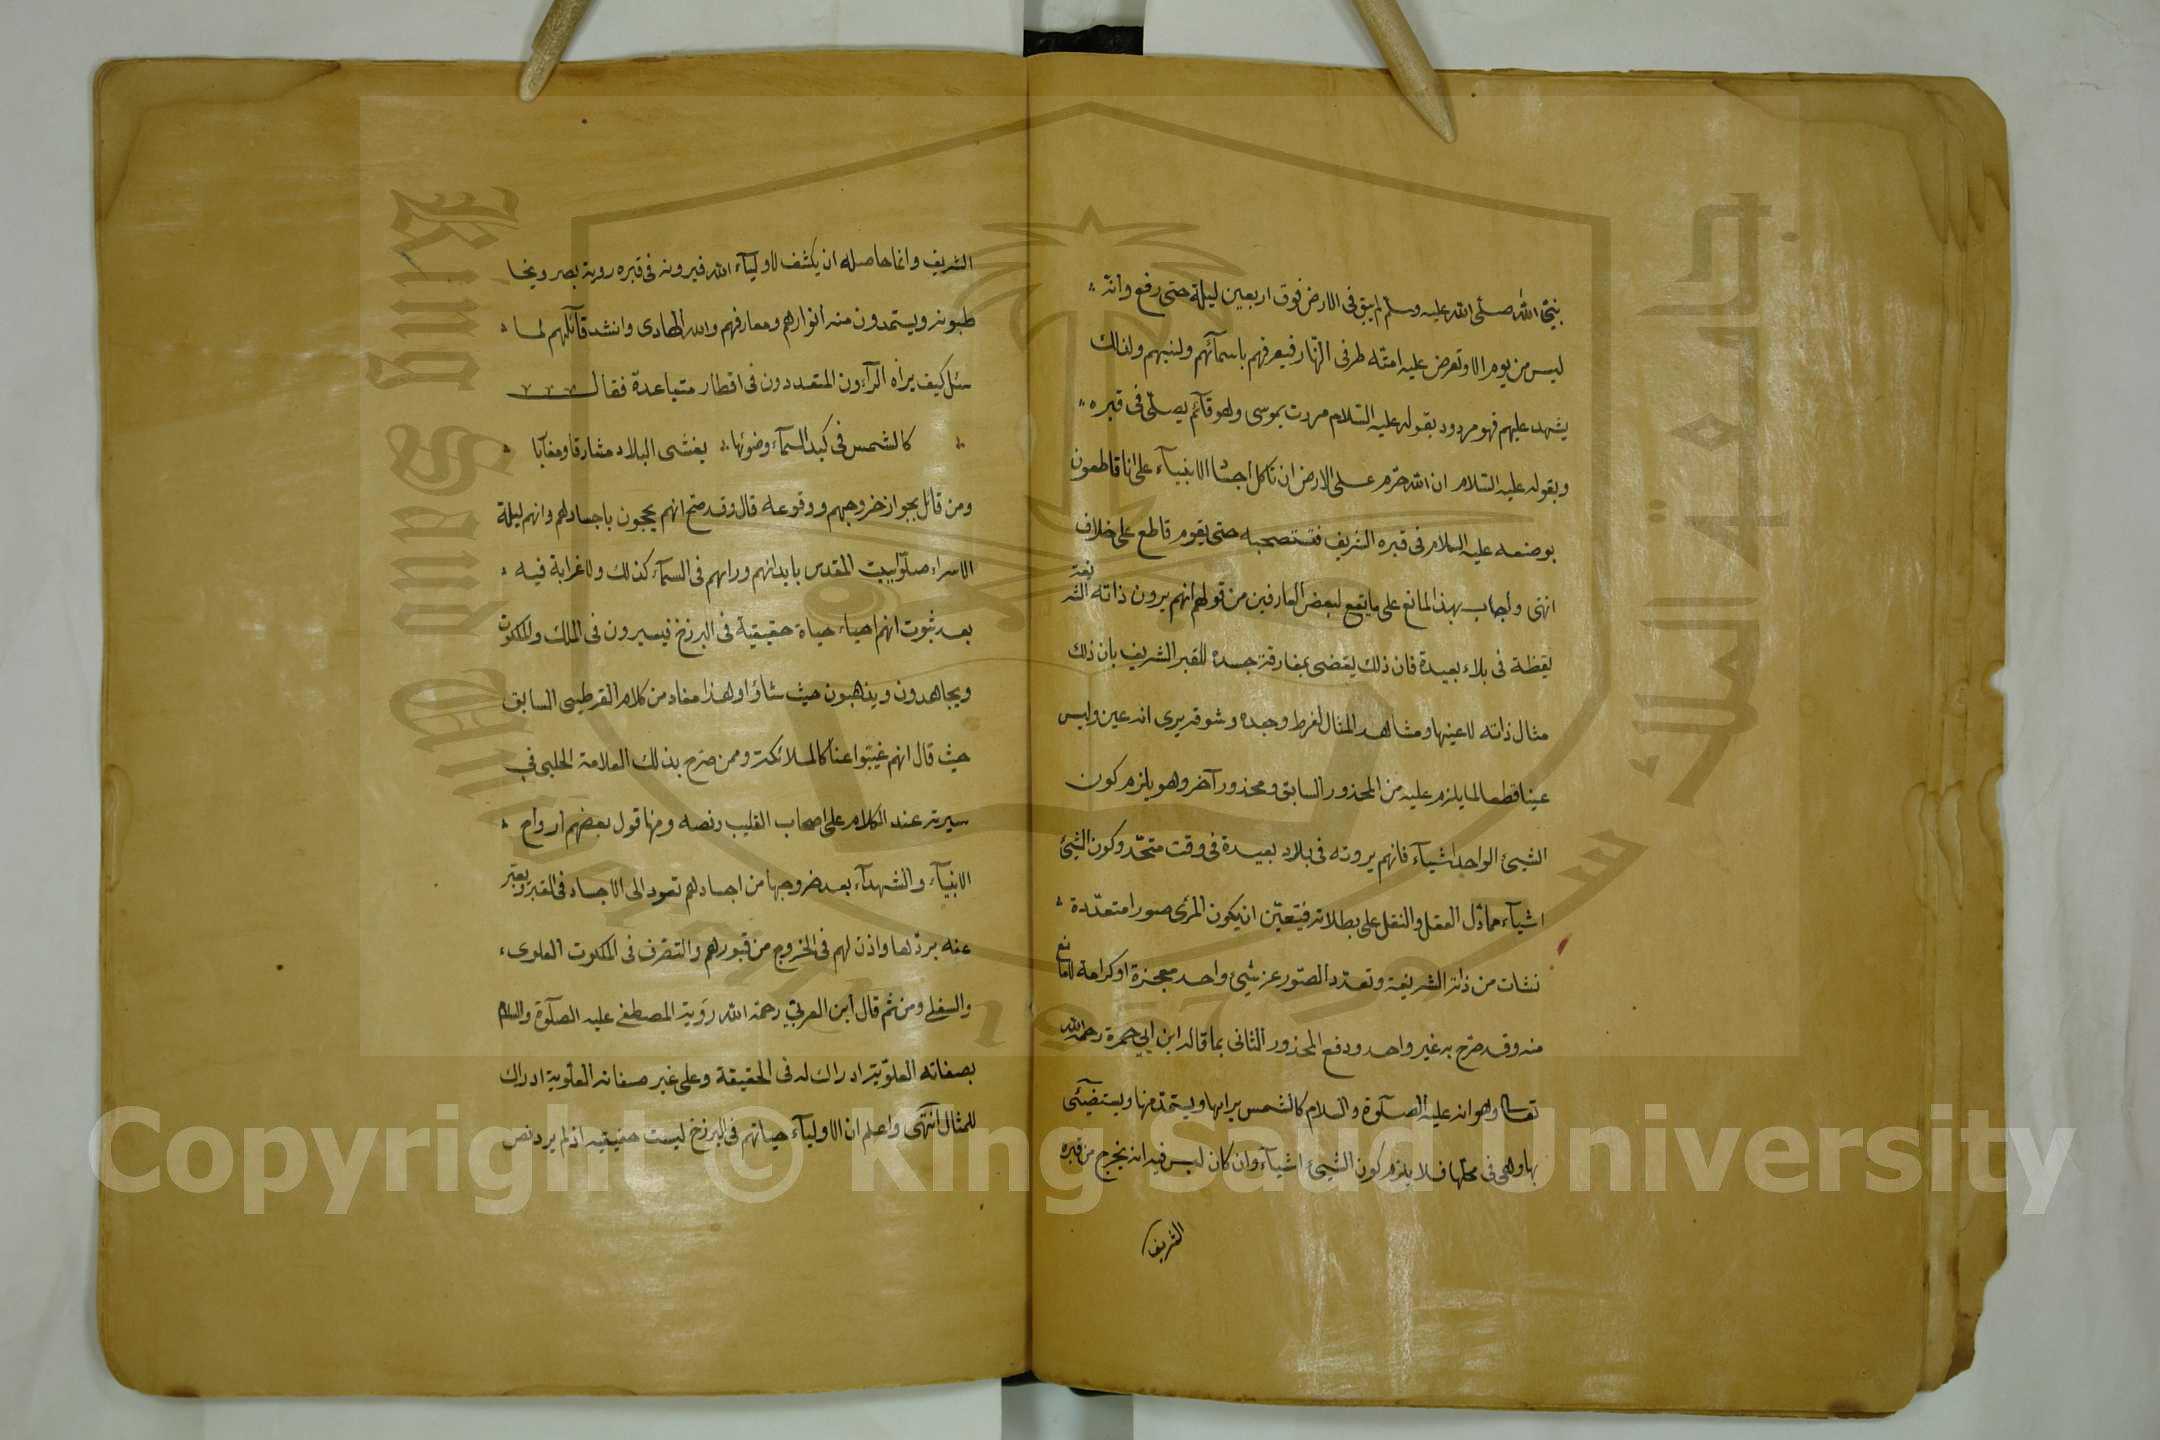 نبيّنا الله صلّى الله عليه وسلّم لم يبق فى الارض فوق اربعين ليلة حتى رفع وانه
ليس من يوم الا وتعرض عليه امته طرفى النّهار فيعرفهم باسمآئهم ولذلك
يشهد عليهم فهو مردود بقوله عليه السّلام مررت بموسى وهو قآئم يصلّى فى قبره
وبقوله عليه السّلام ان الله حرّم على الارض ان تأكل اجساد الانبيآء على انا قاطعون
بوضعه عليه السلام فى قبره الشريف فنستصحبه حتى يقوم قاطع على خلافه
انتهى واجاب بهذا المانع على ما يقع لبعض العارفين من قولهم انهم يرون ذاته الشريفة
يقظة فى بلاد بعيدة فان ذلك يقضى بمفارقة جسده للقبر الشريف بان ذلك
مثال ذاته لا عينها ومشاهد المثال لفرط وجده وشوقه يرى انه عين وليس
عينا قطعا لما يلزم عليه من المحذور السابق ومحذور آخر وهو يلزم كون
الشيئ الواحد اشيآء فانهم يرونه فى بلاد بعيدة فى وقت متحّد وكون الشيئ
اشيآء مما دّل العقل والنقل على بطلانه فيتعيّن ان يكون المرئى صورا متعدّدة
نشات من ذاته الشريفة وتعدّد الصّور عن شيئ واحد معجزة او كرامة لا مانع
منه وقد صّرح به غير واحد ودفع المحذور الثانى بما قاله ابن ابي جمرة رحمه الله
تعالى وهو انه عليه الصلوة والسلام كالشمس يراها ويستمّد منها ويستضيئى
بها وهى فى محلّها فلا يلزم كون الشيئ اشيآء وان كان ليس فيه انه يخرج من قبره
الشريف
الشريف وانما حاصله ان يكشف لاوليآء الله فيرونه فى قبره روية بصر ويخا
طبونه ويستمدون منه انوارهم ومعارفهم والله الهادى وانشد قآئلهم لما
سئل كيف يراه الرآءون المتعددون فى اقطار متباعدة فقال
كالشمس فى كبد السمآء وضوئها يغشى البلاد مشارقا ومغآبا
ومن قائل بجواز خروجهم ووقوعه قال وقد صّح انهم يحجون باجسادهم وانهم ليلة
الاسراء صلّوا ببيت المقدس بابدانهم وراهم فى السمآء كذلك ولا غرابة فيه
بعد ثبوت انهم احياء حياة حقيقية فى البرزخ فيسيرون فى الملك والملكوت
ويجاهدون ويذهبون حيث شاؤا وهذا مفاد من كلام القرطبى السابق
حيث قال انهم غيّبوا عنا كالملائكة وممن صّرح بذلك العلامة الحلبى في
سيرته عند الكلام على اصحاب القليب ونصه ومنها قول بعضهم ارواح
الانبيآء والشهدآء بعد خروجها من اجسادهم تعود الى الاجساد فى القبر ويعبّر
عنه بردّها واذن لهم فى الخروج من قبورهم والتصّرف فى الملكوت العلوى
والسفلى ومن ثم قال ابن العربي رحمه الله رؤية المصطفى عليه الصلّوة والسلام
بصفاته العلوّية ادراك له فى الحقيقة وعلى غير صفاته العلوية ادراك
للمثال انتهى واعلم ان الاوليآء حياتهم فى البرزخ ليست حقيقيه اذ لم يرد نص
King Saud University
1957
جامعة الملك سعود
Copyright © King Saud University